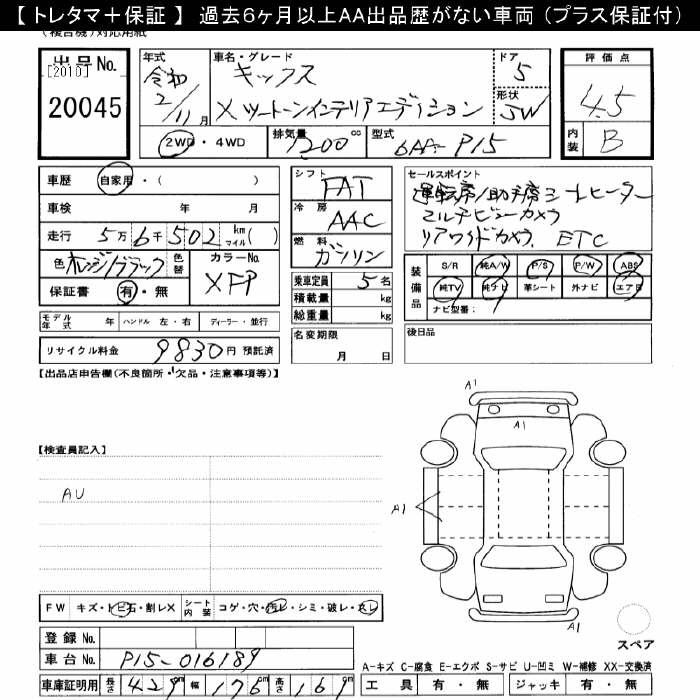 【トレタマ＋保証】 過去６ヶ月以上AA出品歴がない車両（プラス保証付）
出品No. [2010] 20045
年式 令和 2/11月
車名・グレード キックス X ツートーンインテリアエディション
ドア 5
形状 SW
評価点 4.5
内装 B
2WD・4WD 排気量 1200cc 型式 6AA-P15
車歴 自家用・（ ）
車検 年 月
走行 5万6千502 km マイル( )
色 オレンジ/ブラック 色替 カラーNo. XFP
保証書 有・無
シフト FAT
冷房 AAC
燃料 ガソリン
乗車定員 5名
積載量 kg
総重量 kg
セールスポイント
運転席/助手席シートヒーター
マルチビューカメラ
リアワイドカメラ. ETC
装備品 S/R 純A/W P/S P/W ABS
純TV 純ナビ 革シート 外ナビ エアB
ナビ型番：
モデル年式 年 ハンドル 左・右 ディーラー・並行
リサイクル料金 9830円 預託済
名変期限 月 日
後日品
【出品店申告欄(不良箇所・欠品・注意事項等)】
A1
A1
【検査員記入】
AU
A1
FW キズ・トビ石・割レX シート内装 コゲ・穴・汚レ・シミ・破レ・スレ
A1
登録No.
スペア
車台No. P15-016189
A-キズ C-腐食 E-エクボ S-サビ U-凹ミ W-補修 XX-交換済
車庫証明用 長さ 429cm 幅 176cm 高さ 161cm
工具 有・無 ジャッキ 有・無